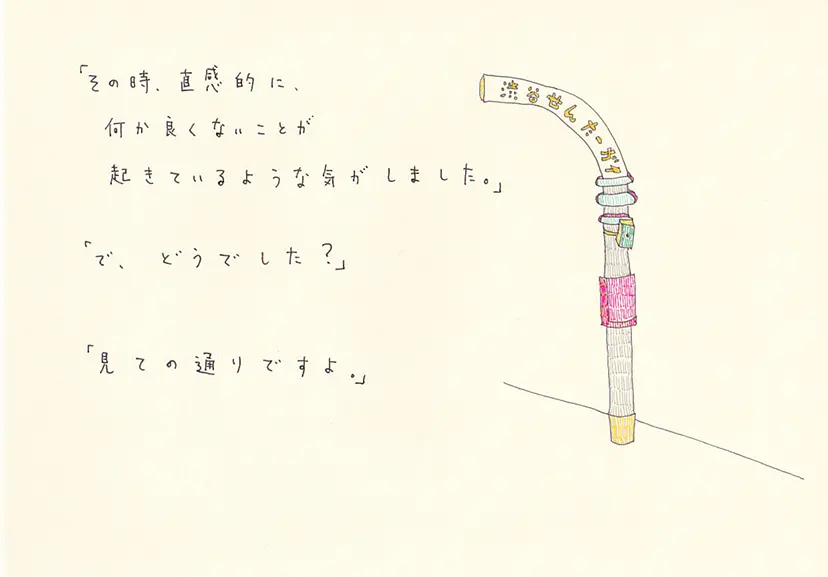 「その時、直感的に、
何か良くないことが
起きているような気がしました。」
「で、どうでした?」
「見ての通りですよ。」
渋谷せんたっ